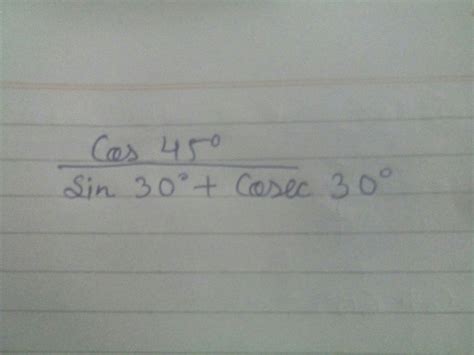 Cos 45°
Sin 30° + Cosec 30°